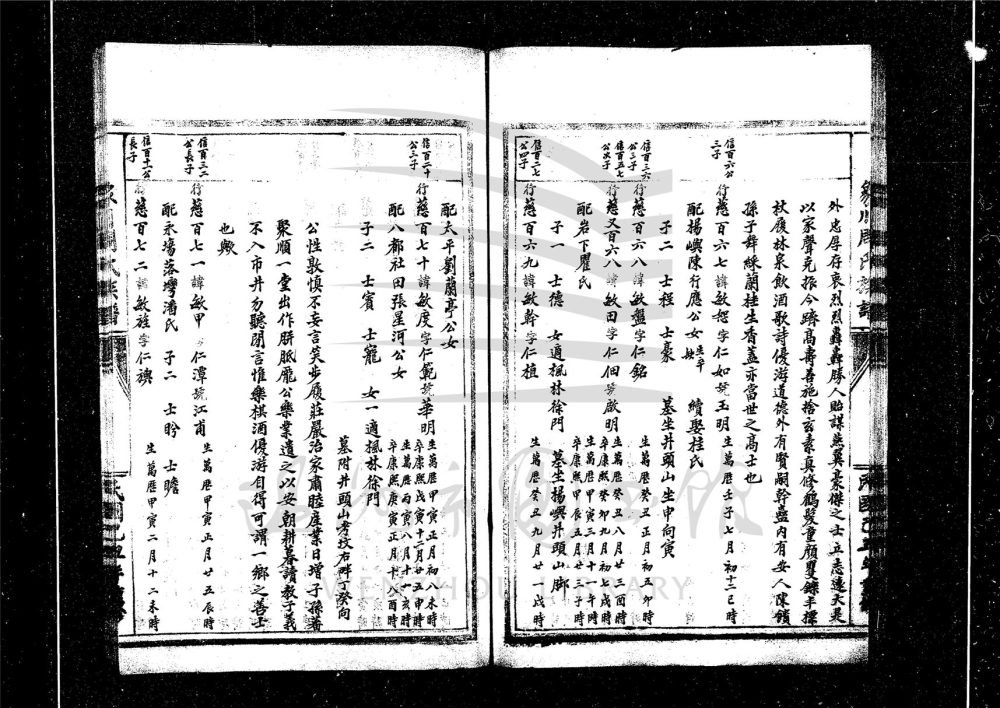 外忠厚存衷烈烈轟轟勝人貽謀燕翼豪傑之士立志遠大夫
以家聲克振今躋高壽善施捨玄素真修鶴髮童顏矍鑠丰標
杖履林泉飲酒歌詩優游道德外有賢嗣幹蠱內有安人陳饋
孫子舞綵蘭桂生香蓋亦當世之高士也
信百六公三子
行慈百六七諱敏恕字仁如號玉明
生萬曆壬子七月初十三巳時
配楊嶼陳行應公女
續娶桂氏
子二 士程 士豪
墓坐井頭山坐申向寅
信百三六公三子
行慈百六八諱敏盤字仁銘
生萬曆癸丑正月初五卯時
信百五七公次子
行慈又百六八諱敏田字仁佃號啟明
生萬曆癸丑八月廿三酉時
卒康熙癸卯九月初七戌時
配岩下瞿氏
生萬曆甲寅三月十一午時
卒康熙甲辰五月廿三子時
子一 士德 女適楓林徐門
墓坐楊嶼井頭山脚
信百二七公四子
行慈百六九諱敏幹字仁植
生萬曆癸丑九月廿戌時
配太平劉蘭亭公女
信百二十公三子
行慈百七十諱敏度字仁範號華明
生萬曆甲寅正月初八未時
卒康熙戊寅十二月廿五申時
配八都社田張星河公女
生萬曆甲寅八月十一亥時
卒康熙庚寅正月十八酉時
子二 士賓 士寵 女一適楓林徐門
墓附井頭山考坟右畔丁癸向
公性敦慎不妄言笑步履莊嚴治家肅睦產業日增子孫蕃
聚順一堂出作胼胝龐公樂業遺之以安朝耕暮讀教子義
不入市井勿聽閒言惟樂棋酒優游自得可謂一鄉之善士
也歟
信百三二公長子
行慈百七一諱敏甲字仁潭號江甫
生萬曆甲寅正月廿五辰時
配永塲落墺潘氏 子二 士昑 士瞻
信百十一公長子
行慈百七二諱敏旌字仁襖
生萬曆甲寅二月十二未時
WENZHOU LIBRARY